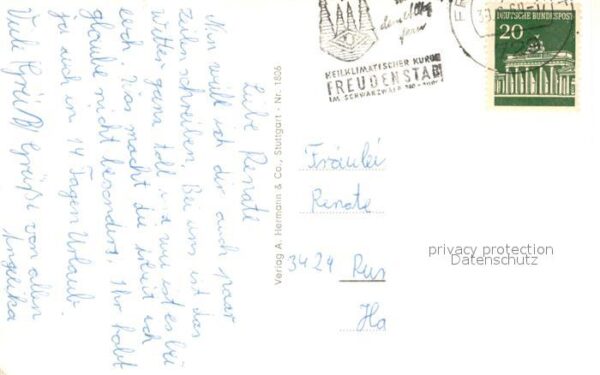 Liebe Renate
Nun will ich dir auch paar
Zeilen schreiben. Bei uns ist das
Wetter ganz toll und wie ist es bei
euch? Was macht die Arbeit ich
glaube nicht besonders. Ihr habt
ja auch in 14 Tagen Urlaub.
Viele Grüße von allen
Angelika
Verlag A. Hermann & Co., Stuttgart - Nr. 1806
dem Alltag
fern
HEILKLIMATISCHER KURORT
FREUDENSTADT
IM SCHWARZWALD
DEUTSCHE BUNDESPOST
20
Fräulei
Renate
3424
Ha
privacy protection
Datenschutz